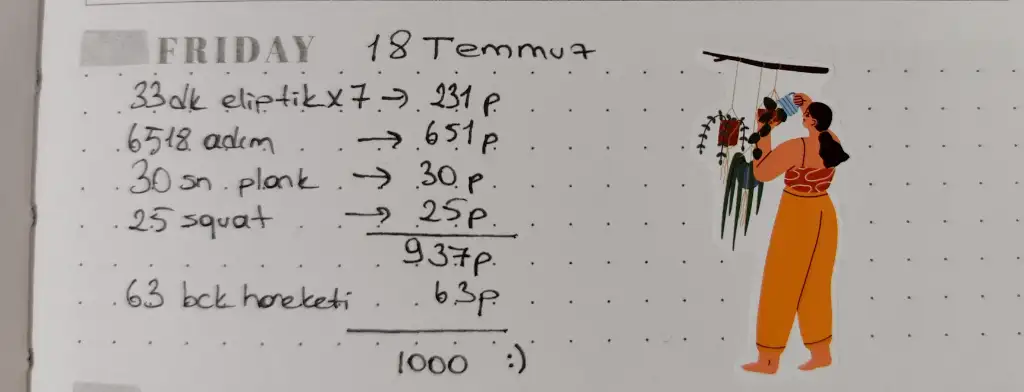 FRIDAY 18 Temmuz
33dk eliptik x 7 → 231 p.
6518 adım → 651 p.
30 sn plank → 30 p.
25 squat → 25 p.
937 p.
63 bck hareketi 63 p.
1000 :)